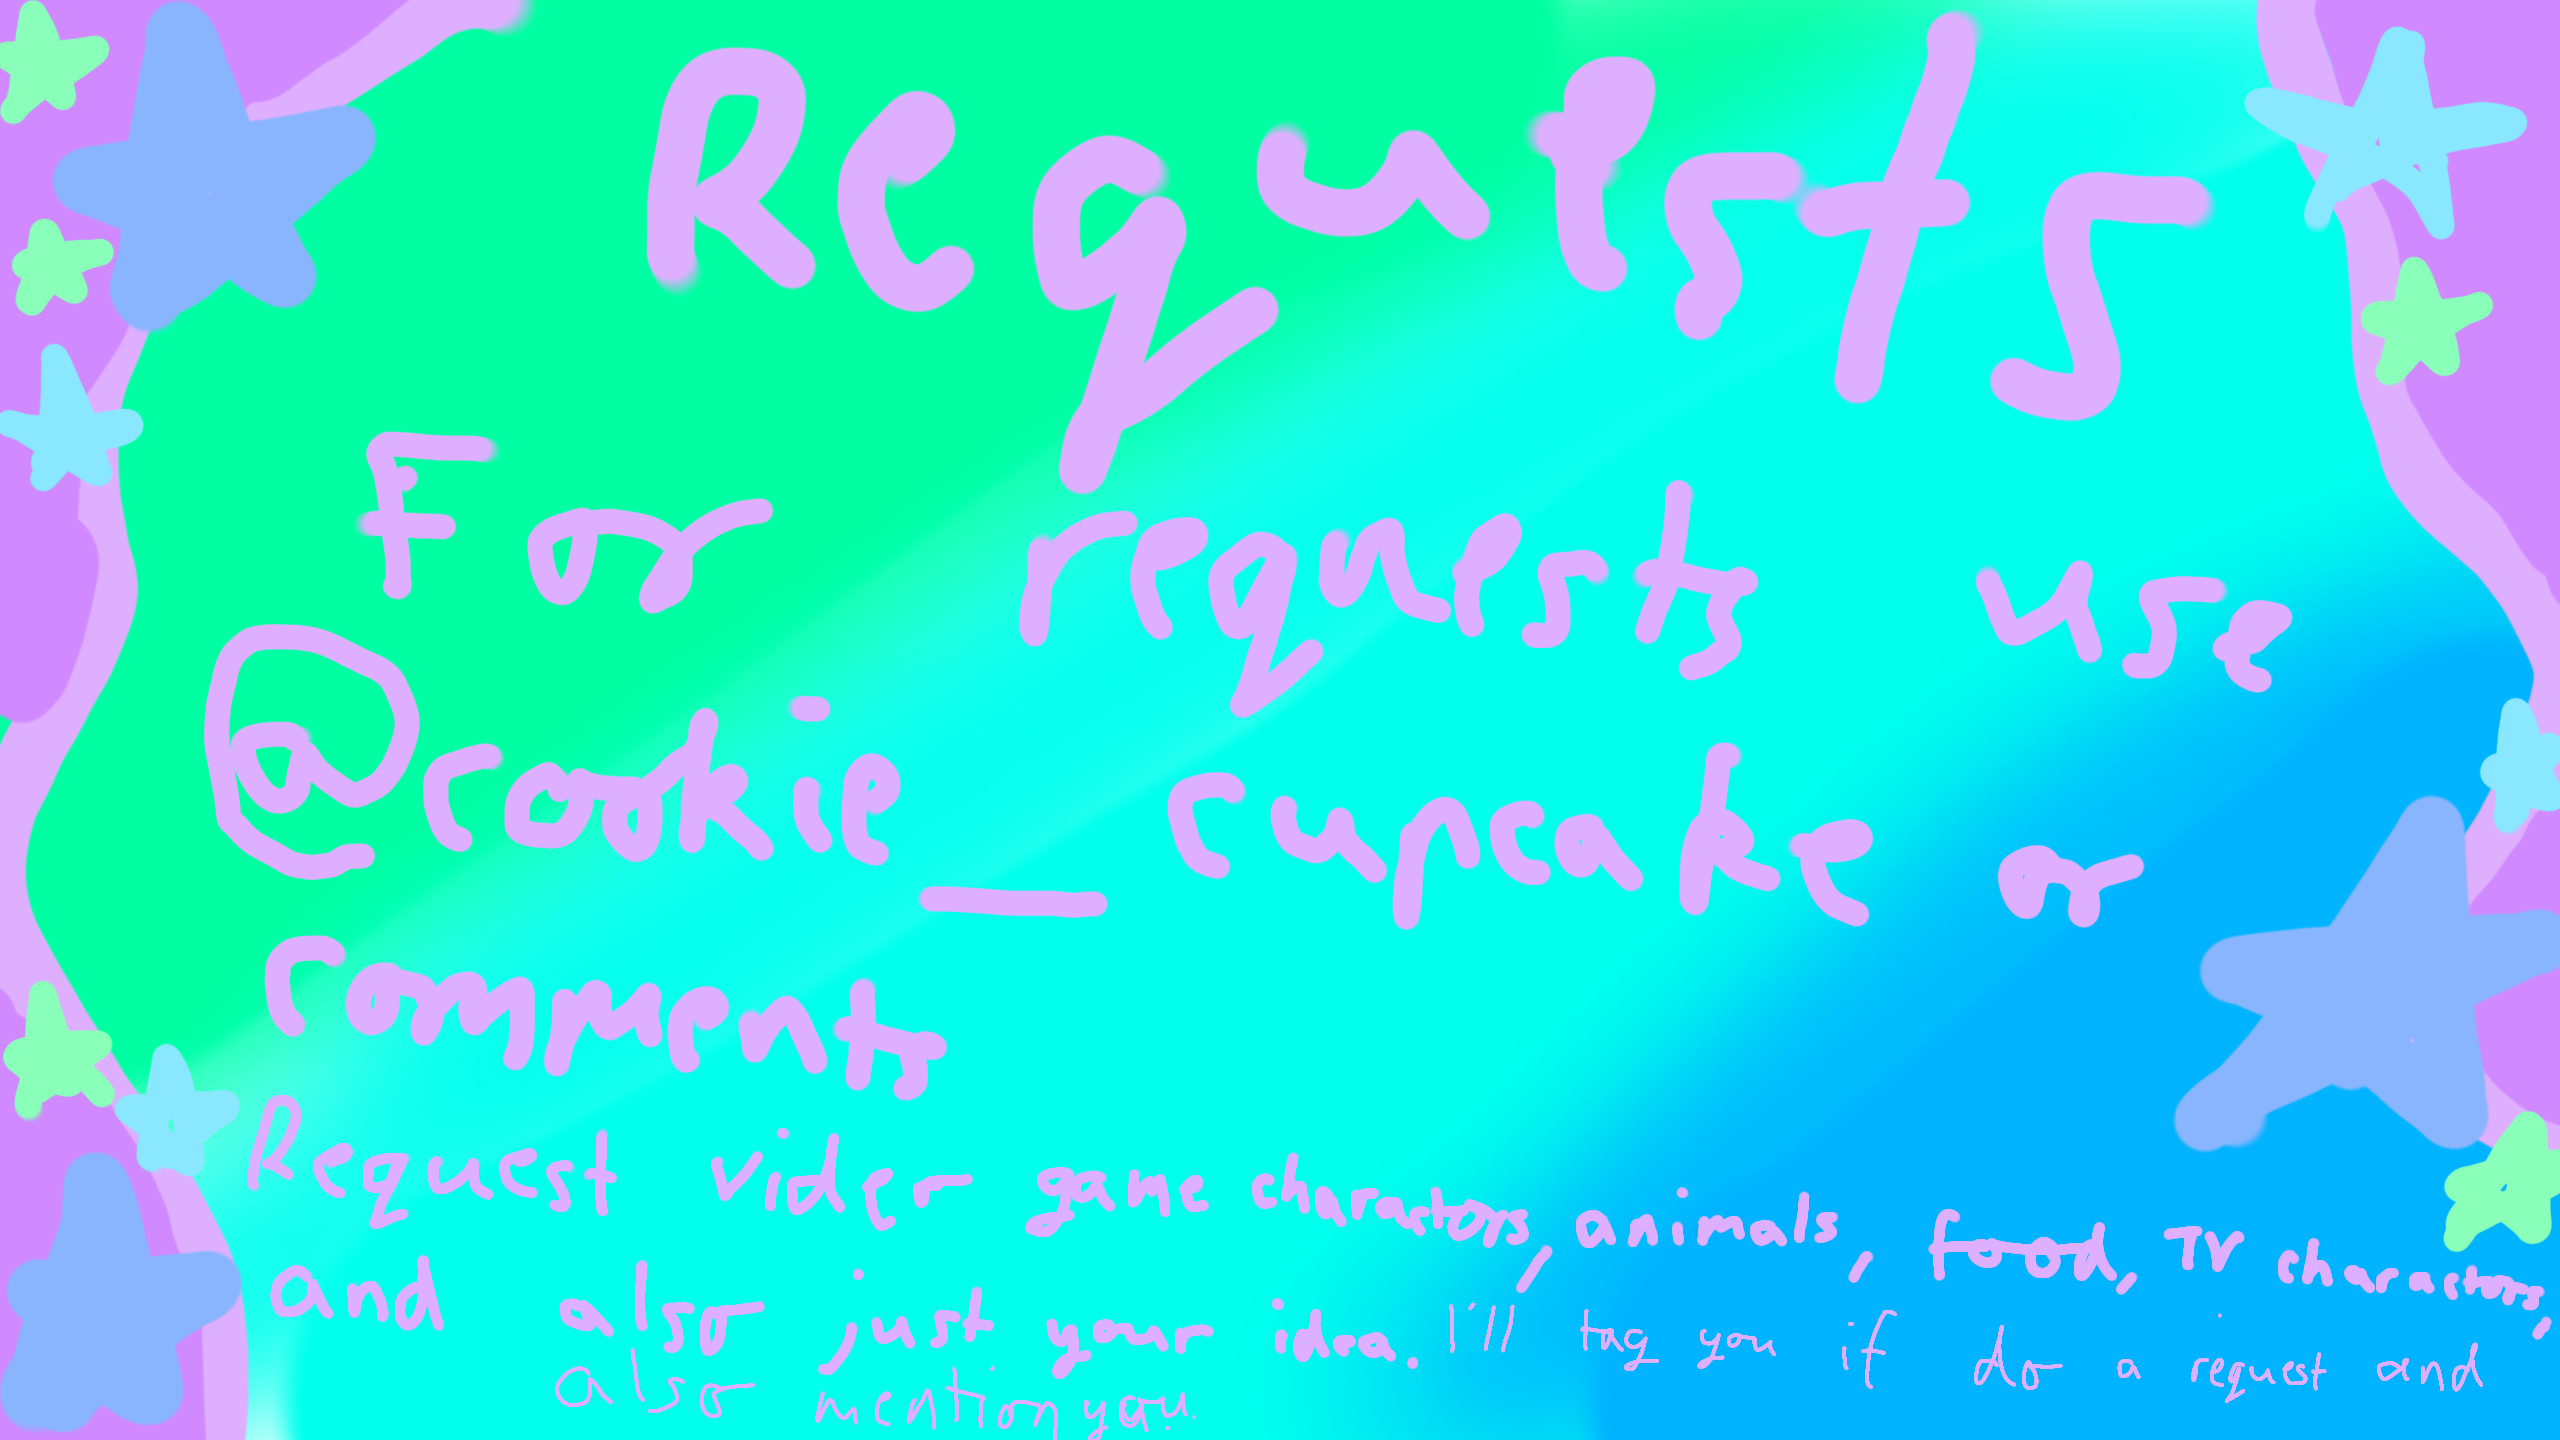 Requests
For requests use
@cookie_cupcake or
comments
Request video game charactors, animals, food, TV charactors,
and also just your idea. I'll tag you if do a request and
also mention you.